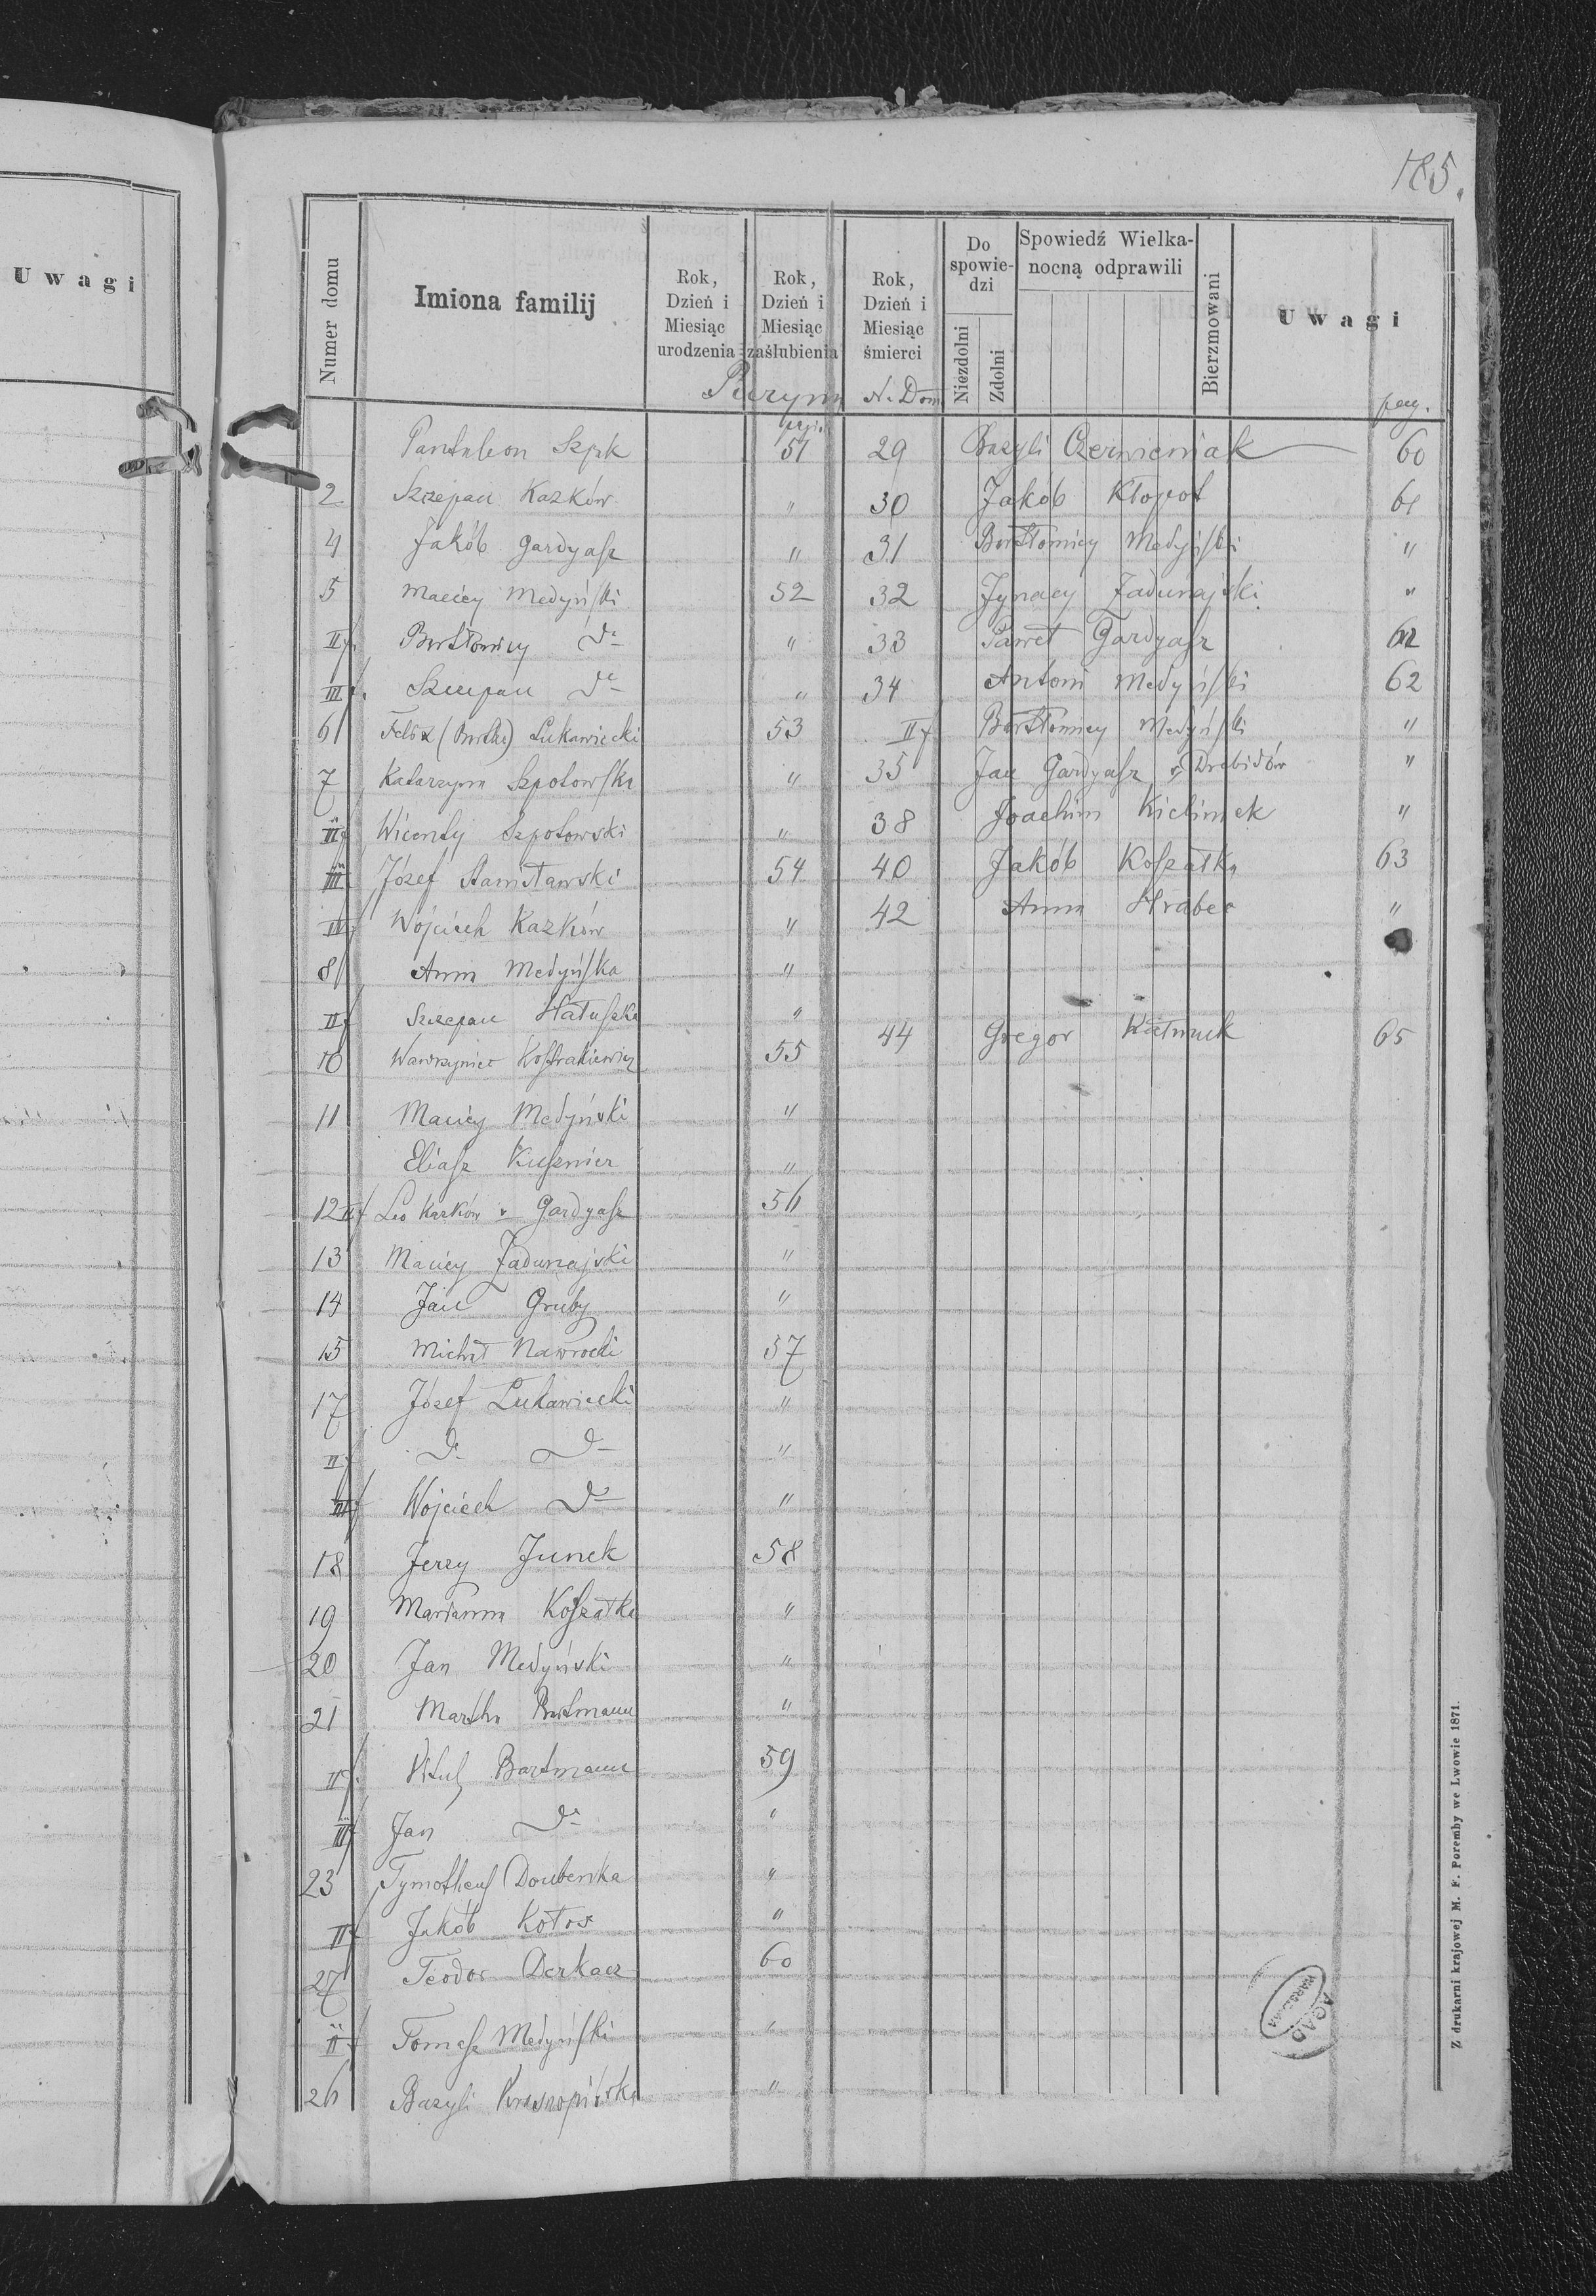 Uwagi
185.
Numer domu
Imiona familij
Rok, Dzień i Miesiąc urodzenia
Rok, Dzień i Miesiąc zaślubienia
Rok, Dzień i Miesiąc śmierci
Do spowiedzi
Niezdolni
Zdolni
Spowiedź Wielkanocną odprawili
Bierzmowani
Uwagi
N. Dom
pag.
pag.
Pantaleon Szpak 51 29 Bazyli Czerwieniak 60
2 Szczepan Kazków " 30 Jakób Kłopot 61
4 Jakób Gardyasz " 31 Bartłomiey Medyński "
5 Maciey Medyński 52 32 Jgnacy Zadunajski "
II f. Bartłomiey dto " 33 Paweł Gardyasz 62
III f. Szczepan dto " 34 Antoni Medyński 62
6 Felix Łukawiecki 53 II f Bartłomiey Medyński "
7 Katarzyna Szpotowska " 35 Jan Gardyasz v. Drabidów "
II f Wicenty Szpotowski " 38 Joachim Kiclimek "
III Józef Stanisławski 54 40 Jakób Koszałka 63
IV f Wojciech Kazków " 42 Anna Hrabec "
8 Anna Medyńska "
II f Szczepan Hałuszka "
10 Wawrzyniec Kostrakiewicz 55 44 Gregor 65
11 Maciey Medyński "
Eliasz Kuszmier "
12 II f Leo Kazków v Gardyasz 56
13 Maciey Zadunajski "
14 Jan Gruby "
15 Michał Nawrocki 57
17 Józef Łukawiecki "
II f dto dto "
III f Wojciech dto "
18 Jerzy Junek 58
19 Marianna Koszałka "
20 Jan Medyński "
21 Martha Bartmann "
II f. Vitus Bartmann 59
III f Jan dto "
23 Tymotheus Doubenka "
II f Jakób Kołos "
27 Teodor Derkacz 60
II f Tomasz Medyński "
26 Bazyli Krasnopiórka "
AGAD
WARSZAWA
Z drukarni krajowej M. F. Poremby we Lwowie 1871.